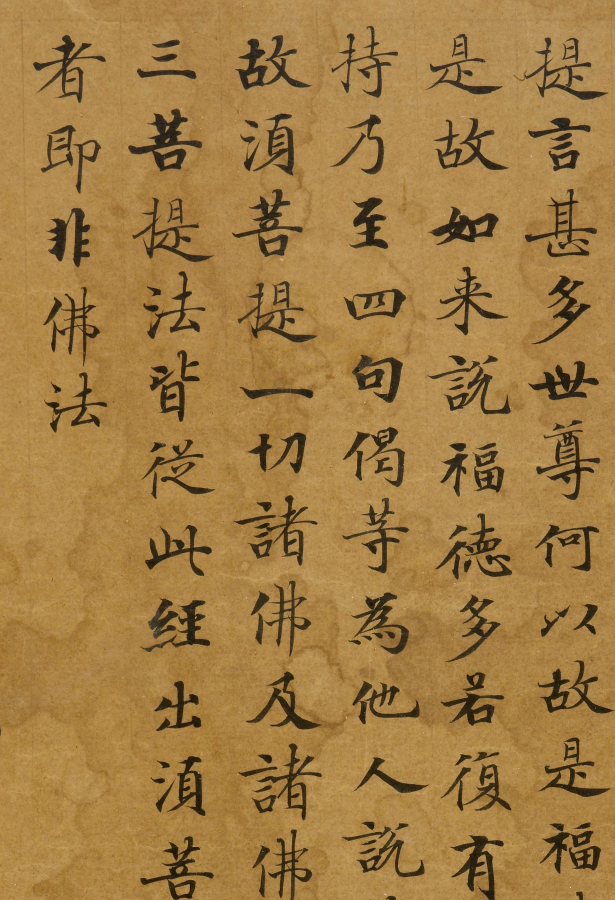 提言甚多世尊何以故是福
是故如来說福德多若復有
持乃至四句偈等為他人說
故湏菩提一切諸佛及諸佛
三菩提法皆從此經出湏菩
者即非佛法